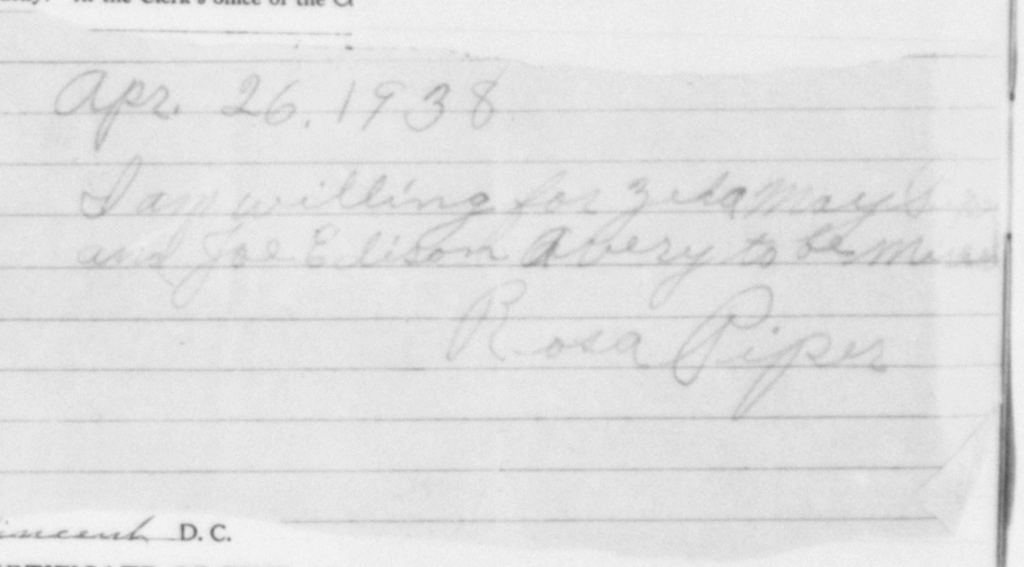 In the Clerk's office of the
Apr. 26, 1938
I am willing for Zeda May
and Joe Edison Avery to be
Rosa Piper
D. C.